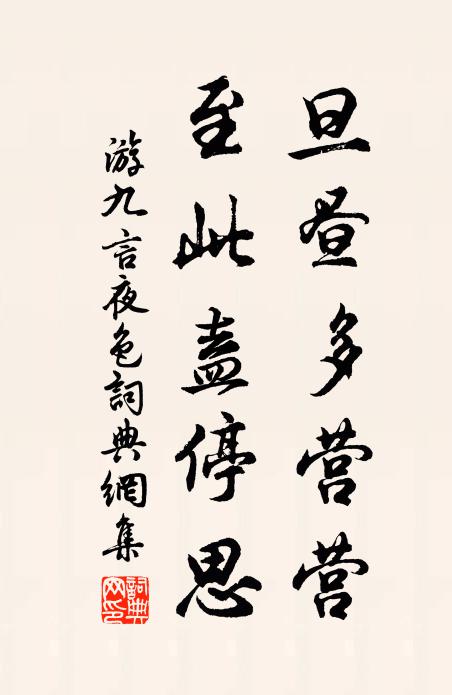 旦昼多营营
至此盍停思
游九言夜色詞典網集
詞典
网印